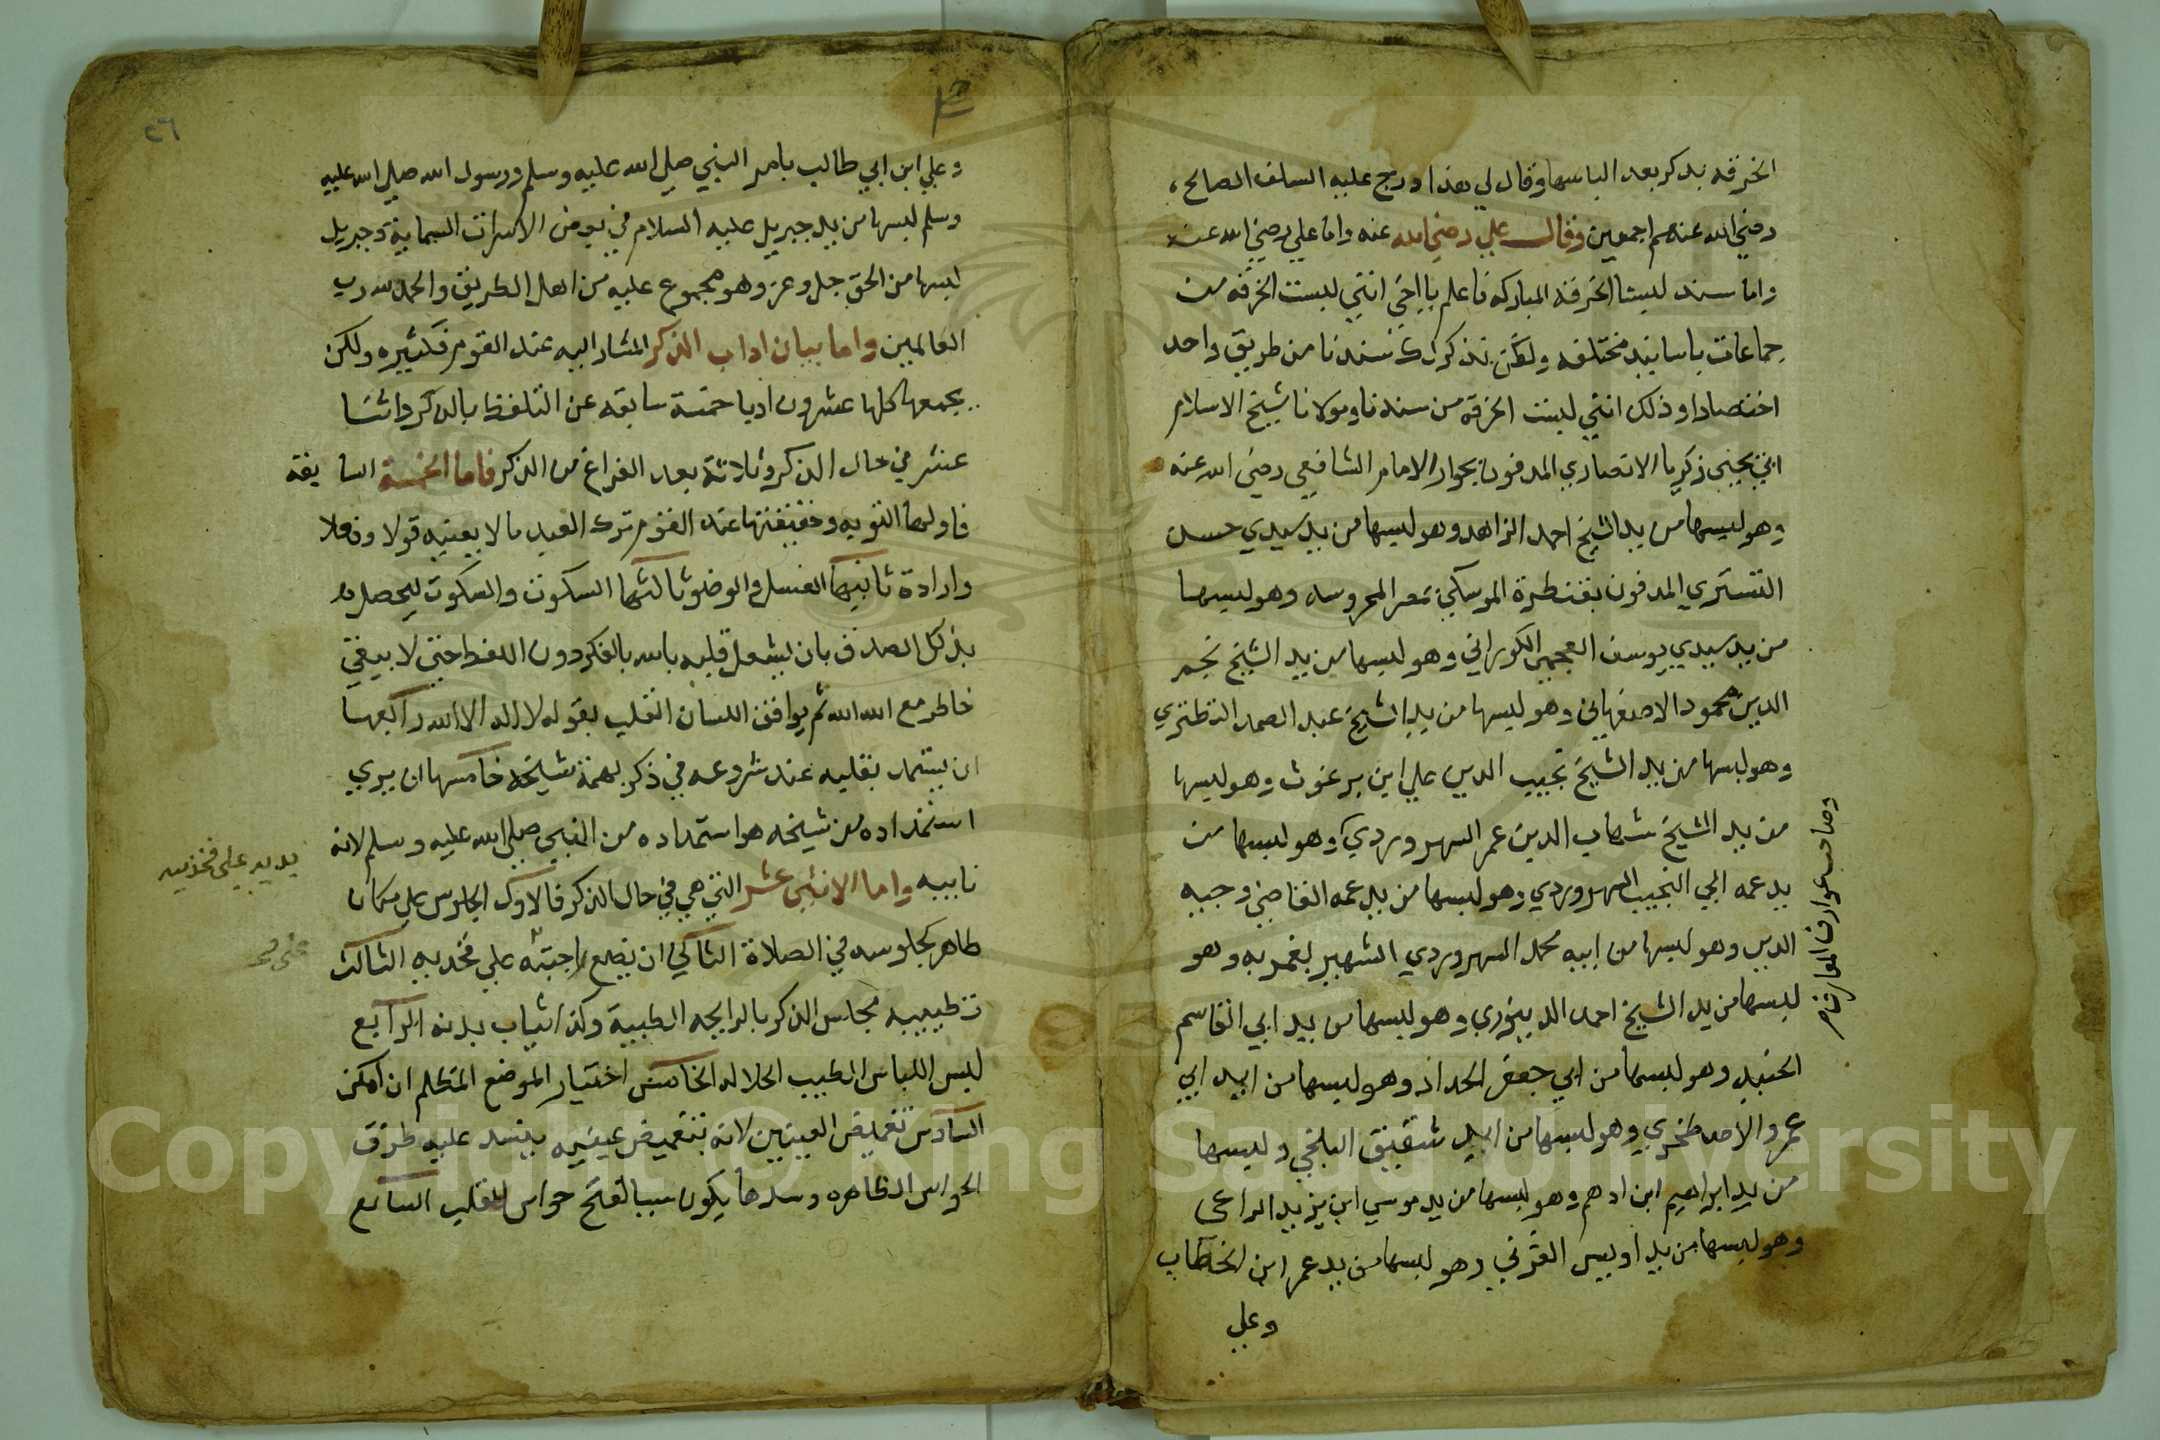 الخرقه يدكر بعد الباسها وقال لي هذا درج عليه السلف الصالح،
رضي الله عنهم اجمعين وقال علي رضي الله عنه واما علي رضي الله عنه
واما سند لبسنا الخرقه المباركه فاعلم يا اخي انني لبست الخرقه من
جماعات باسانيد مختلفه ولكن نذكر لك سندنا من طريق واحد
اختصارا وذلك انني لبست الخرقة من سندنا ومولانا شيخ الاسلام
ابي يحيى زكريا الانصاري المدفون بجوار الامام الشافعي رضي الله عنه
وهو لبسها من يد الشيخ احمد الزاهد وهو لبسها من يد سيدي حسن
التستري المدفون بقنطرة الموسكي بمصر المحروسه وهو لبسها
من يد سيدي يوسف العجمي الكوراني وهو لبسها من يد الشيخ نجم
الدين محمود الاصفهاني وهو لبسها من يد الشيخ عبد الصمد النظنزي
وهو لبسها من يد الشيخ نجيب الدين علي ابن برغوث وهو لبسها
من يد الشيخ شهاب الدين عمر السهروردي وهو لبسها من
يد عمه ابي النجيب السهروردي وهو لبسها من يد عمه القاضي وجيه
الدين وهو لبسها من ابيه محمد السهروردي الشهير بعمويه وهو
لبسها من يد الشيخ احمد الدينوري وهو لبسها من يد ابي القاسم
الجنيد وهو لبسها من ابي جعفر الحداد وهو لبسها من ايد ابي
عمرو الاصطخري وهو لبسها من ايد شقيق البلخي ولبسها
من يد ابراهيم ابن ادهم وهو لبسها من يد موسى ابن يزيد الراعي
وهو لبسها من يد اويس القرني وهو لبسها من يد عمر ابن الخطاب
وعلي
وصاحب عوارف المعارف
٢٦
وعلي ابن ابي طالب بامر النبي صلي الله عليه وسلم ورسول الله صلي الله عليه
وسلم لبسها من يد جبريل عليه السلام في بعض الاسرات السمايية وجبريل
لبسها من الحق جل وعز وهو مجموع عليه من اهل الطريق والحمد لله رب
العالمين واما بيان اداب الذكر المشار اليه عند القوم فكثيره ولكن
يجمعها كلها عشرون ادبا خمسة سابقه عن التلفظ بالذكر واثنا
عشر في حال الذكر وثلاثة بعد الفراغ من الذكر فاما الخمسة السابقة
فاولها التوبه وحقيقتها عند القوم ترك العبد ما لا يعنيه قولا وفعلا
وارادة ثانيها الغسل والوضو ثالثها السكون والسكوت ليحصل له
بذكر الصدق بان يشغل قلبه بالله بالفكر دون اللفظ حتى لا يبقى
خاطر مع الله الله ثم يوافق اللسان القلب بقوله لا اله الا الله رابعها
ان يستمد بقلبه عند شروعه في ذكر بهمة شيخه خامسها ان يري
استمداده من شيخه هو استمداده من النبي صلي الله عليه وسلم لانه
نايبه واما الاثني عشر التي هي في حال الذكر فالاول الجلوس علي مكان
طاهر كجلوسه في الصلاة الثاني ان يضع راحتيه علي فخديه الثالث
تطييبه مجلس الذكر بالرايحه الطيبة وكذا ثياب بدنه الرابع
لبس اللباس الطيب الحلاله الخامس اختيار الموضع المظلم ان امكن
السادس تغميض العينين لانه بتغميض عينيه ينسد عليه طرق
الحواس الظاهره وسدها يكون سببا لفتح حواس القلب السابع
يديه علي فخذيه